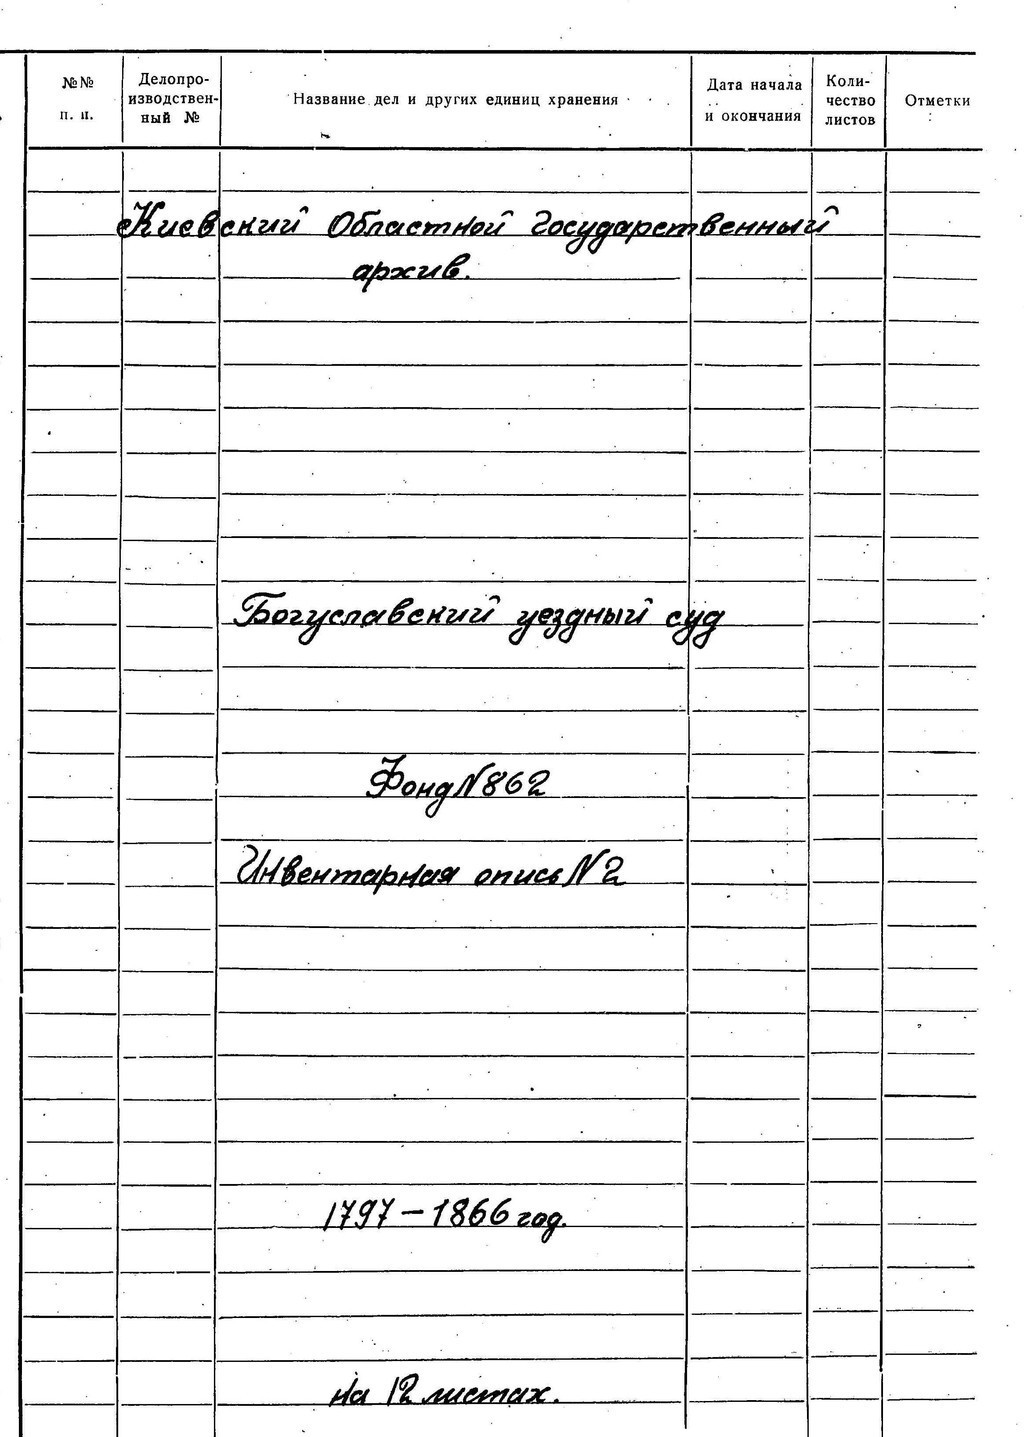 №№ п. п.
Делопро-
изводствен-
ный №
Название дел и других единиц хранения
Дата начала
и окончания
Коли-
чество
листов
Отметки
Киевский Областной Государственный
архив.
Богуславский уездный суд
Фонд N 862
Инвентарная опись N 2
1797 — 1866 год.
на 12 листах.